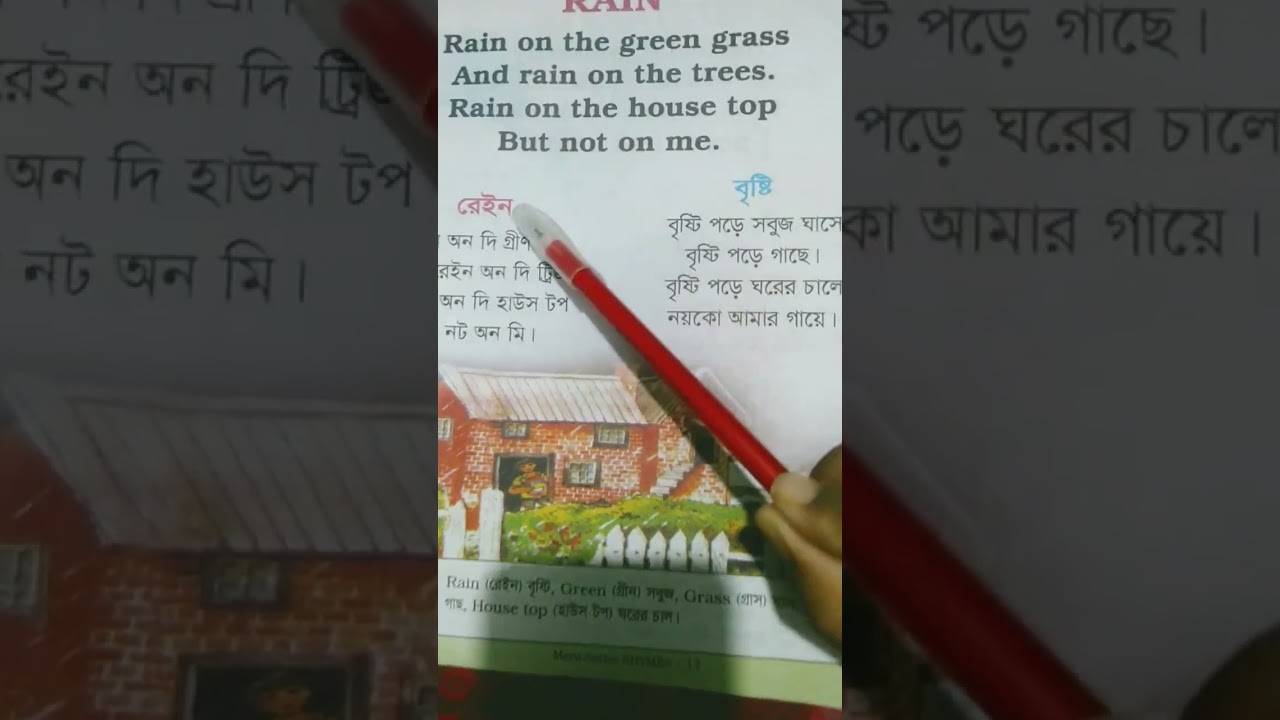 RAIN
Rain on the green grass
And rain on the trees.
Rain on the house top
But not on me.
রেইন
অন দি গ্রীণ
রেইন অন দি
অন দি হাউস টপ
নট অন মি।
বৃষ্টি
বৃষ্টি পড়ে সবুজ ঘাসে
বৃষ্টি পড়ে গাছে।
বৃষ্টি পড়ে ঘরের চালে
নয়কো আমার গায়ে।
Rain (রেইন) বৃষ্টি, Green (গ্রীন) সবুজ, Grass (গ্রাস)
গাছ, House top (হাউস টপ) ঘরের চাল।